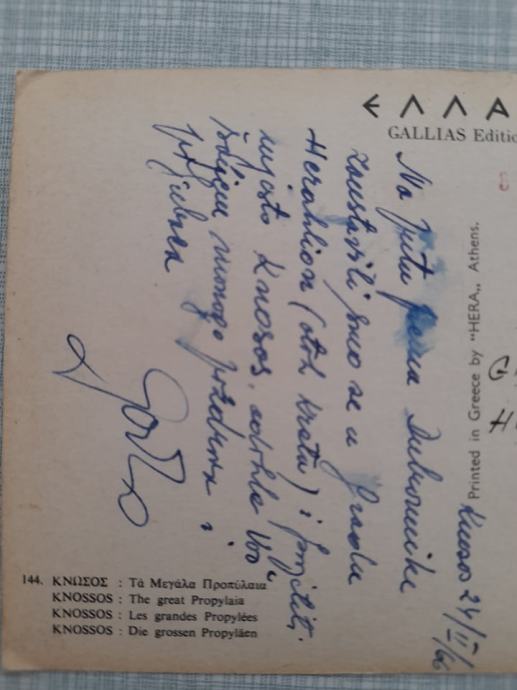 ΕΛΛΑ
GALLIAS Editio
Printed in Greece by "HERA„ Athens.
Knosos 24/II/66
Na putu prema Dubrovniku
zaustavili smo se u gradu
Heraklion (otok Kreta) i posjetili
mjesto Knosos, odakle Vam
šaljem mnogo pozdrava i
poljubaca
144. ΚΝΩΣΟΣ : Τὰ Μεγάλα Προπύλαια
KNOSSOS : The great Propylaia
KNOSSOS : Les grandes Propylées
KNOSSOS : Die grossen Propyläen